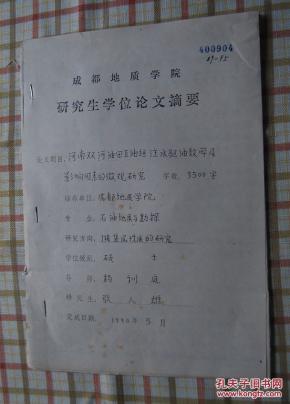 400904
成都地质学院
研究生学位论文摘要
论文题目：河南双河油田Ⅱ油组注水驱油效率及
影响因素的微观研究 字数：3500字
培养单位：成都地质学院
专业：石油地质与勘探
研究方向：储集层性质的研究
学位级别：硕士
导师：
研究生：张人雄
完成日期：1990年5月
孔夫子旧书网